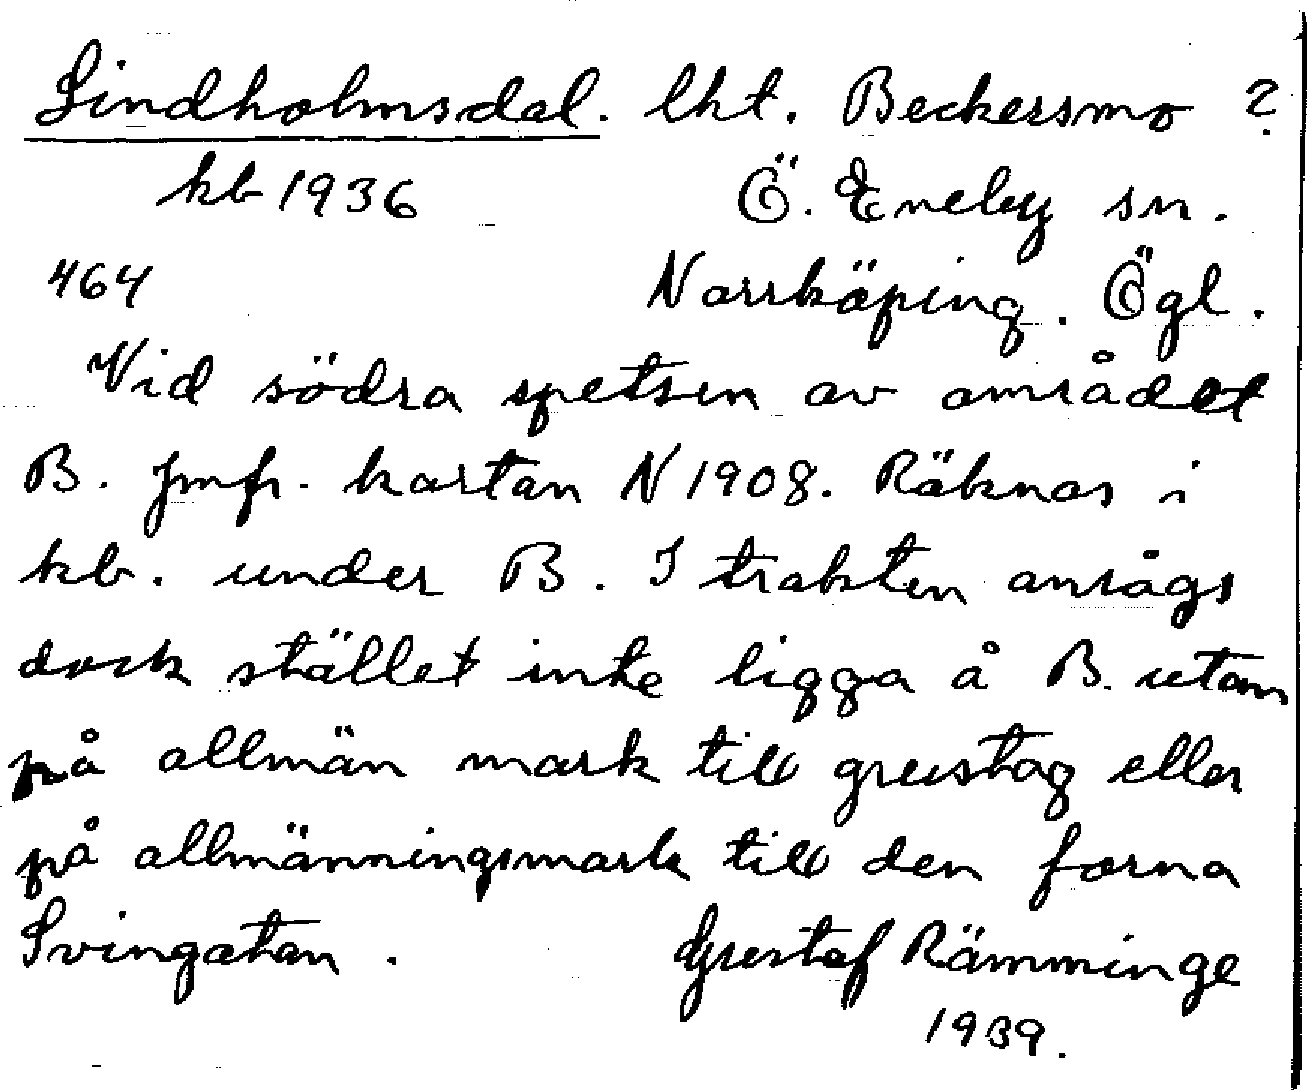 Lindholmsdal. lht. Beckersmo ?
kb 1936 Ö. Eneby sn.
464 Norrköping. Ögl.
Vid södra spetsen av området
B. Jmfr. kartan N 1908. Räknas i
kb. under B. I trakten ansågs
dock stället inte ligga å B. utan
på allmän mark till grustag eller
på allmänningsmark till den forna
Svingatan. Gustaf Rämminge
1939.